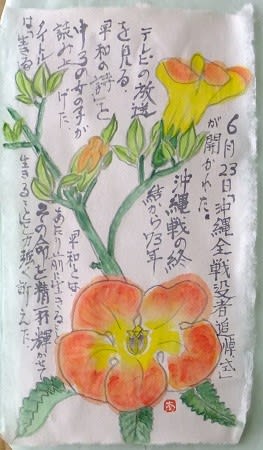 6月23日沖縄全戦没者追悼式」
が開かれた。
沖縄戦の終
結から73年
テレビの放送
を見る
平和の詩」と
中3の女の子が
読み上げた
タイトル
は「生きる」
平和とは
あたり前に生きる
その命を精一杯輝かせて
生きることと力強く訴えた